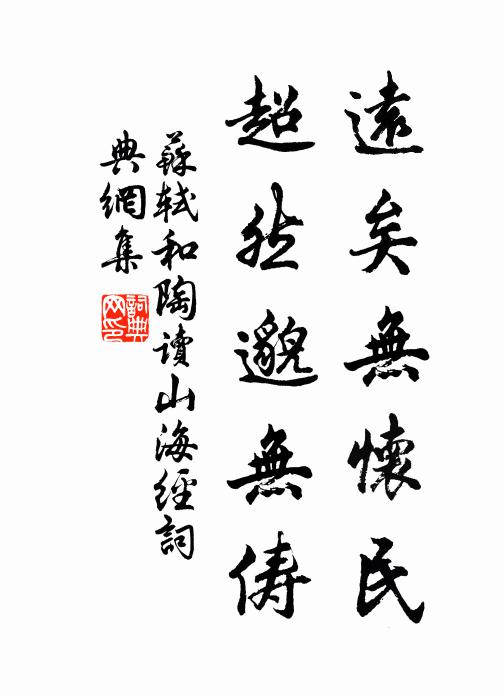 遠矣無懷民
超然邈無儔
蘇軾和陶讀山海經詞
典網集
詞典
网印